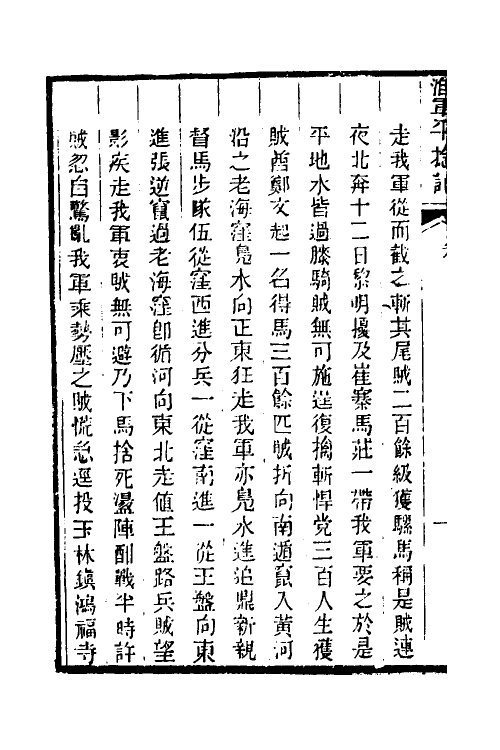 淮軍平捻記
走我軍從而截之斬其尾賊二百餘級獲騾馬稱是賊連
夜北奔十二日黎明擾及崔寨馬莊一帶我軍要之於是
平地水皆過膝騎賊無可施逞復擒斬悍党三百人生獲
賊酋鄭文起一名得馬三百餘匹賊折向南遁竄入黃河
沿之老海窪鳧水向正東狂走我軍亦鳧水進追鼎新親
督馬步隊伍從窪西進分兵一從窪南進一從王盤向東
進張逆竄過老海窪卽循河向東北走值王盤路兵賊望
影疾走我軍衷賊無可避乃下馬捨死盪陣酣戰半時許
賊忽自驚亂我軍乘勢壓之賊慌急逕投玉林鎭鴻福寺